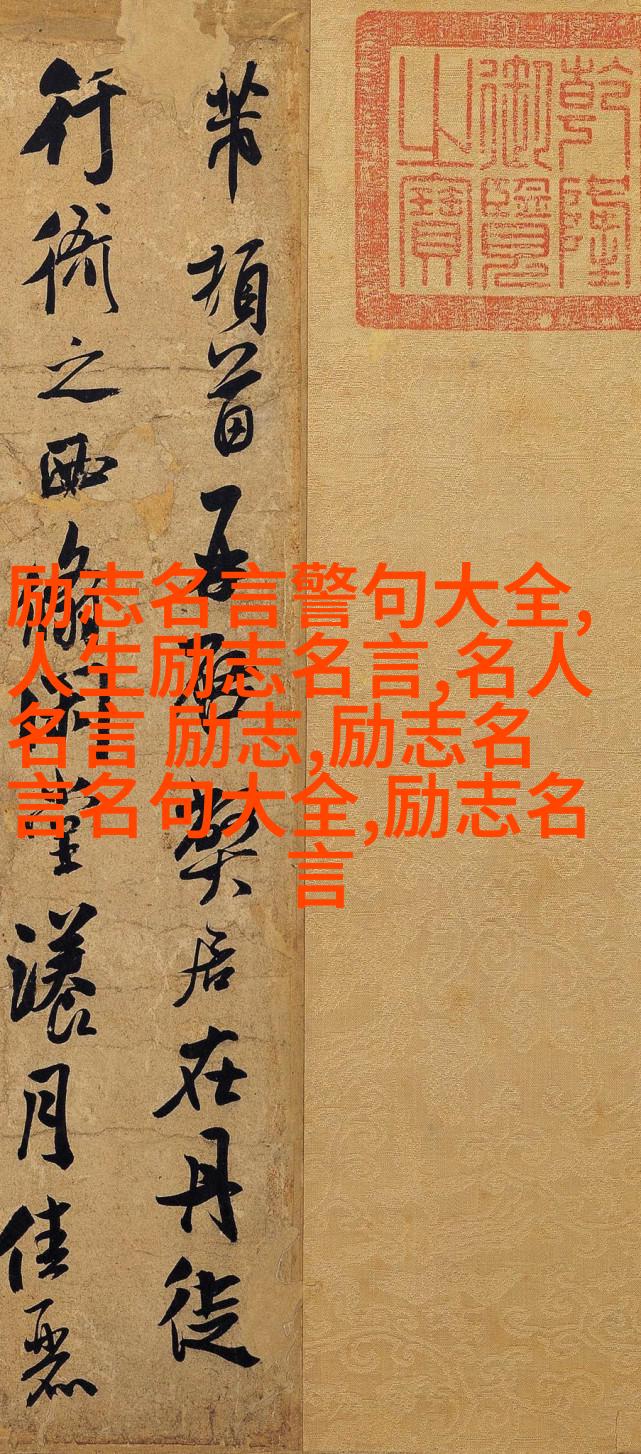 乾隆御覽之寶
芾頓首再啓弊居在丹徒
行衙之西翛閑堂漾月佳麗
励志名言警句大全,
人生励志名言,名人
名言 励志,励志名
言名句大全,励志名
言